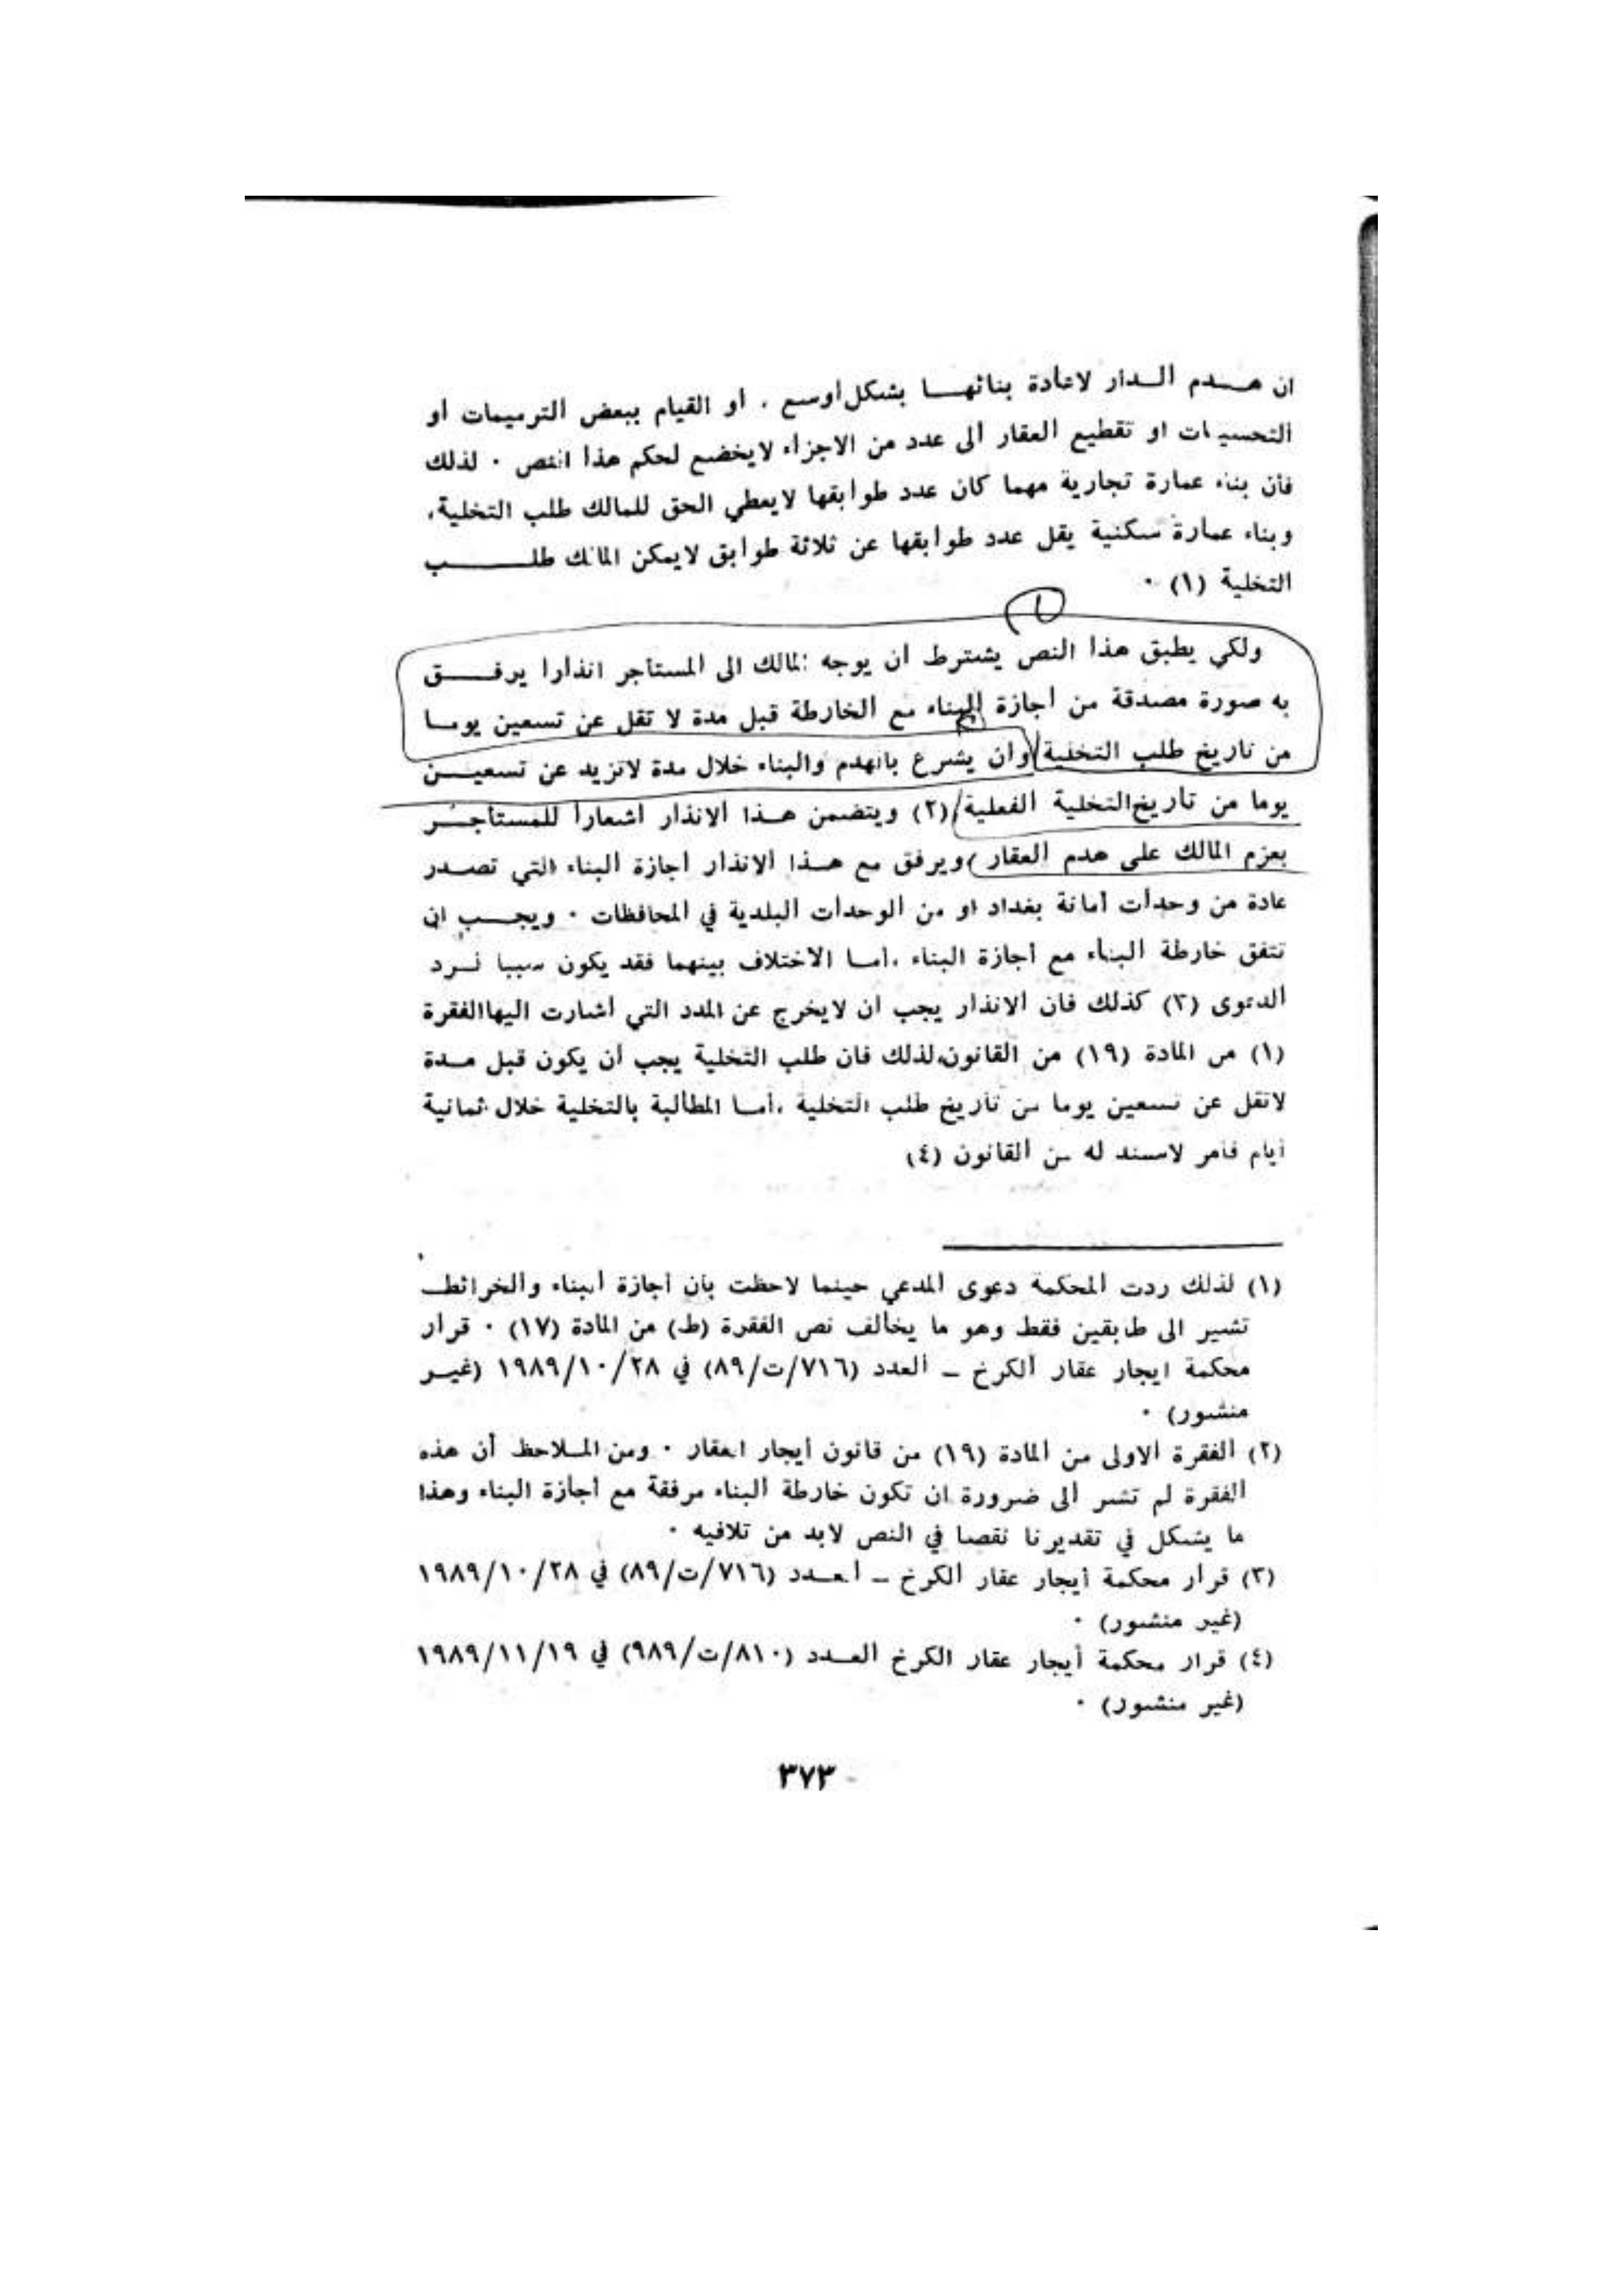 ان هـــدم الـــدار لاعادة بنائهـــا بشكل أوسع . او القيام ببعض الترميمات او
التحسينات او تقطيع العقار الى عدد من الاجزاء لايخضع لحكم هذا النص . لذلك
فأن بناء عمارة تجارية مهما كان عدد طوابقها لايعطي الحق للمالك طلب التخلية،
وبناء عمارة سكنية يقل عدد طوابقها عن ثلاثة طوابق لايمكن المالك طلــــــب
التخلية (١) .
ولكي يطبق هذا النص يشترط ان يوجه المالك الى المستأجر انذارا يرفــــق
به صورة مصدقة من اجازة البناء مع الخارطة قبل مدة لا تقل عن تسعين يومــا
من تاريخ طلب التخلية وان يشرع بالهدم والبناء خلال مدة لاتزيد عن تسعيــن
يوما من تأريخ التخلية الفعلية (٢) ويتضمن هــذا الانذار اشعارا للمستأجــر
بعزم المالك على هدم العقار ويرفق مع هــذا الانذار اجازة البناء التي تصــدر
عادة من وحدات أمانة بغداد او من الوحدات البلدية في المحافظات . ويجــب ان
تتفق خارطة البناء مع اجازة البناء ،امــا الاختلاف بينهما فقد يكون سببا لــرد
الدعوى (٣) كذلك فان الانذار يجب ان لايخرج عن المدد التي اشارت اليهاالفقرة
(١) من المادة (١٩) من القانون،لذلك فان طلب التخلية يجب أن يكون قبل مــدة
لاتقل عن تسعين يوما من تأريخ طلب التخلية ،امــا المطالبة بالتخلية خلال ثمانية
أيام فأمر لاسند له من القانون (٤)
(١) لذلك ردت المحكمة دعوى المدعي حينما لاحظت بأن اجازة البناء والخرائطــ
تشير الى طابقين فقط وهو ما يخالف نص الفقرة (ط) من المادة (١٧) . قرار
محكمة ايجار عقار الكرخ ــ العدد (٧١٦/ت/٨٩) في ١٩٨٩/١٠/٢٨ (غيــر
منشور) .
(٢) الفقرة الاولى من المادة (١٩) من قانون أيجار العقار . ومن المــلاحظ أن هذه
الفقرة لم تشر ألى ضرورة ان تكون خارطة البناء مرفقة مع اجازة البناء وهذا
ما يشكل في تقديرنا نقصا في النص لابد من تلافيه .
(٣) قرار محكمة أيجار عقار الكرخ ــ العــدد (٧١٦/ت/٨٩) في ١٩٨٩/١٠/٢٨
(غير منشور) .
(٤) قرار محكمة أيجار عقار الكرخ العــدد (٨١٠/ت/٩٨٩) في ١٩٨٩/١١/١٩
(غير منشور) .
- ٣٧٣